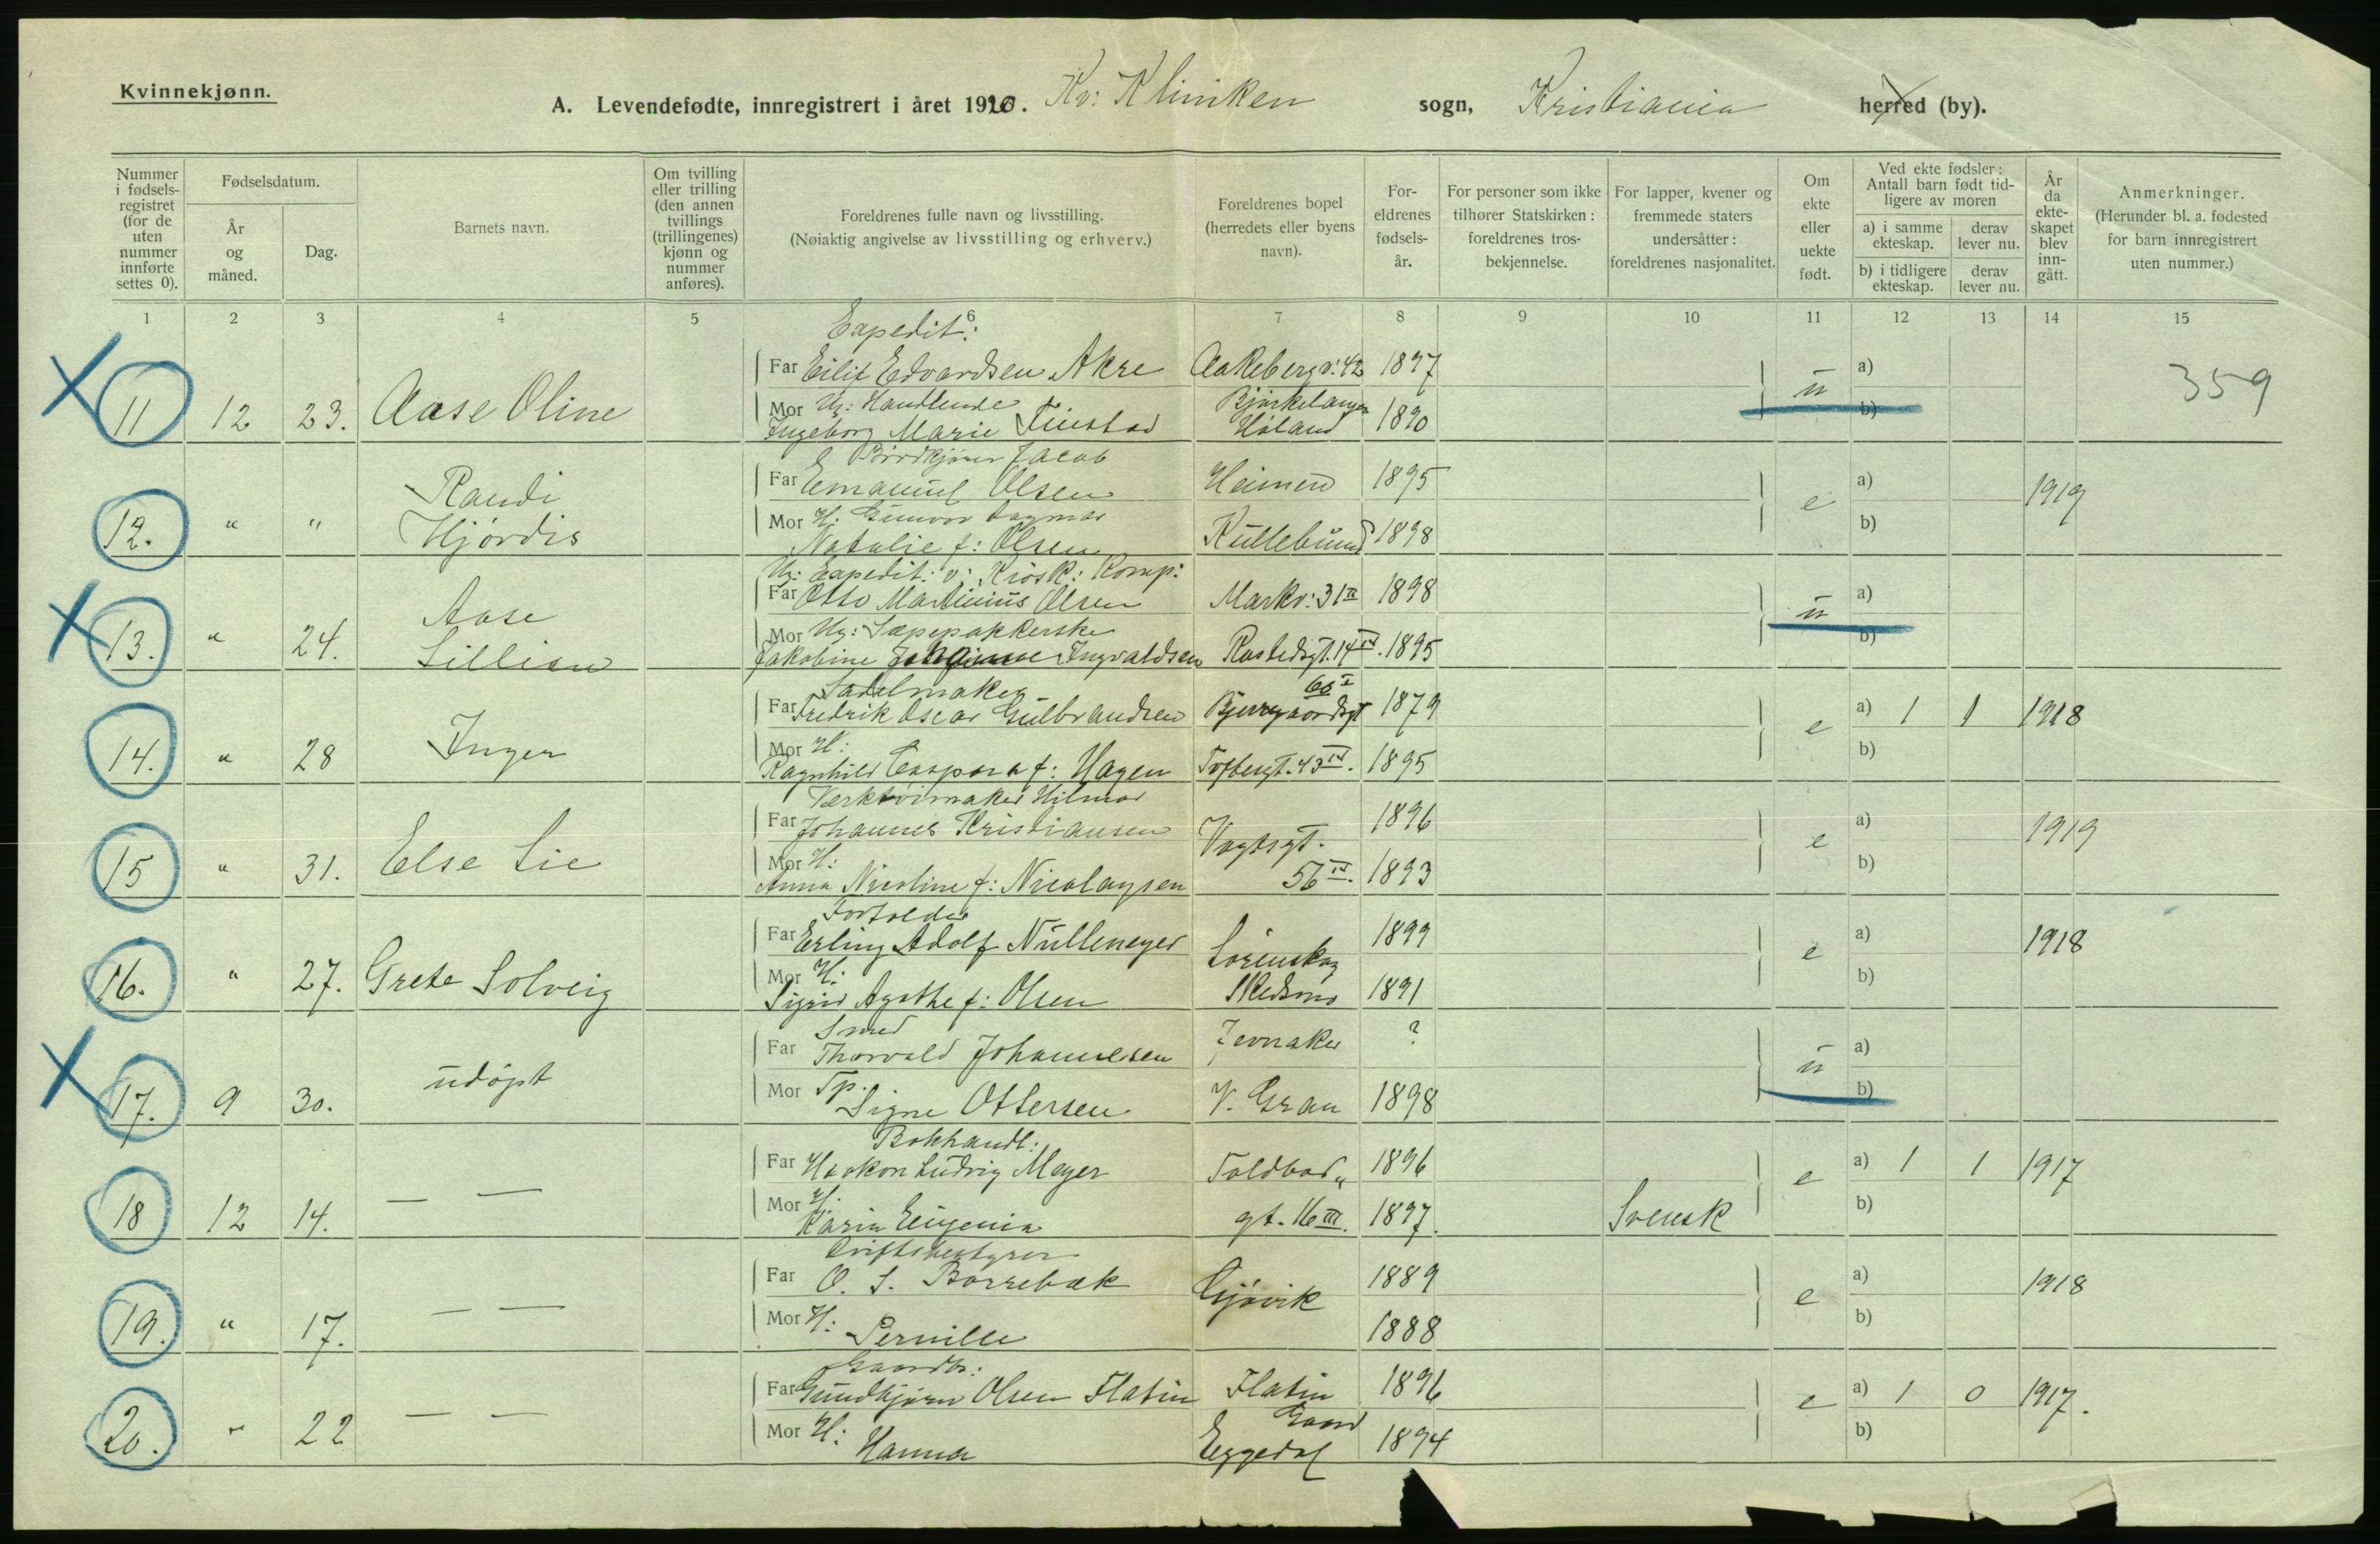 Kvinnekjønn.
A. Levendefødte, innregistrert i året 1920. Kv: Kliniken sogn, Kristiania herred (by).
Nummer i fødsels-registret (for de uten nummer innførte settes 0).
Fødselsdatum.
År og måned.
Dag.
Barnets navn.
Om tvilling eller trilling (den annen tvillings (trillingenes) kjønn og nummer anføres).
Foreldrenes fulle navn og livsstilling.
(Nøiaktig angivelse av livsstilling og erhverv.)
Foreldrenes bopel (herredets eller byens navn).
For-eldrenes fødsels-år.
For personer som ikke tilhører Statskirken: foreldrenes tros-bekjennelse.
For lapper, kvener og fremmede staters undersåtter: foreldrenes nasjonalitet.
Om ekte eller uekte født.
Ved ekte fødsler: Antall barn født tid-ligere av moren
a) i samme ekteskap.
derav lever nu.
b) i tidligere ekteskap.
derav lever nu.
År da ekte-skapet blev inn-gått.
Anmerkninger.
(Herunder bl. a. fødested for barn innregistrert uten nummer.)
1 2 3 4 5 6 7 8 9 10 11 12 13 14 15
Expedit:
Far Eilif Edvardsen Akre Aakebergv: 42 1897 a)
11 12 23. Aase Oline ü 359
Mor Ug: Handlende Bjørkelangen 1890 b)
Ingeborg Marie Finstad Høland
Brødkjører Jacob
Far Emanuel Olsen Heimen 1895 a) 1919
12. " " Randi Hjørdis e
Mor H: Gunvor Dagmar b)
Natalie f: Olsen Kullebund 1898
Ug: Expedit: v: Kiosk: Komp:
Far Otto Martinius Olsen Markv: 31 II 1898 a)
13. " 24. Aase Lillian ü
Mor Ug: Sæpepakkerske b)
Jakobine Johanne Ingvaldsen Rostedsgt. 14 IV. 1895
Sadelmaker 66 I
Far Fredrik Oscar Gulbrandsen Bjerregaardsgt 1879 a) 1 1 1918
14. " 28 Inger e
Mor H: b)
Ragnhild Caspara f: Hagen Toftesgt. 43 IV. 1895
Verktøimaker Hilmar
Far Johannes Kristiansen Vogtsgt. 1896 a) 1919
15 " 31. Else Lie e
Mor H: b)
Anna Nicoline f: Nicolaysen 56 IV. 1893
Forvalder
Far Erling Adolf Nüllmeyer Lørenskog 1899 a) 1918
16. " 27. Grete Solveig e
Mor H: b)
Sigrid Agathe f: Olsen Skedsmo 1891
Smed
Far Thorvald Johannessen Jevnaker ? a)
17. 9 30. udøpt ü
Mor Tp. Signe Ottersen V. Gran 1898 b)
Bokhandl:
Far Haakon Ludvig Meyer Toldbod" 1896 a) 1 1 1917
18 12 14. — — e
Mor H: Karin Eugenia gt. 16 III. 1897. Svensk b)
Driftsbestyrer
Far O. S. Borrebæk Gjøvik 1889 a) 1918
19. " 17. — — e
Mor H: Pernille 1888 b)
Gaardbr:
Far Gundbjørn Olsen Flatin Flatin 1896 a) 1 0 1917.
20. " 22 — — e
Mor H: Hanna Gaard Eggedal 1894 b)